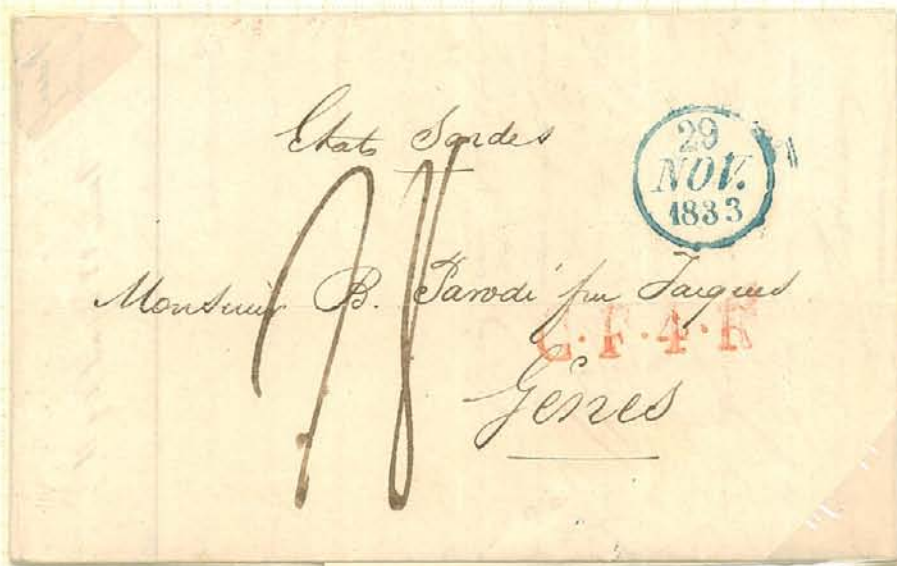 Etats Sardes
29
NOV.
1833
Monsieur B. Parodi fu Jacques
C.F.4.R
Gênes